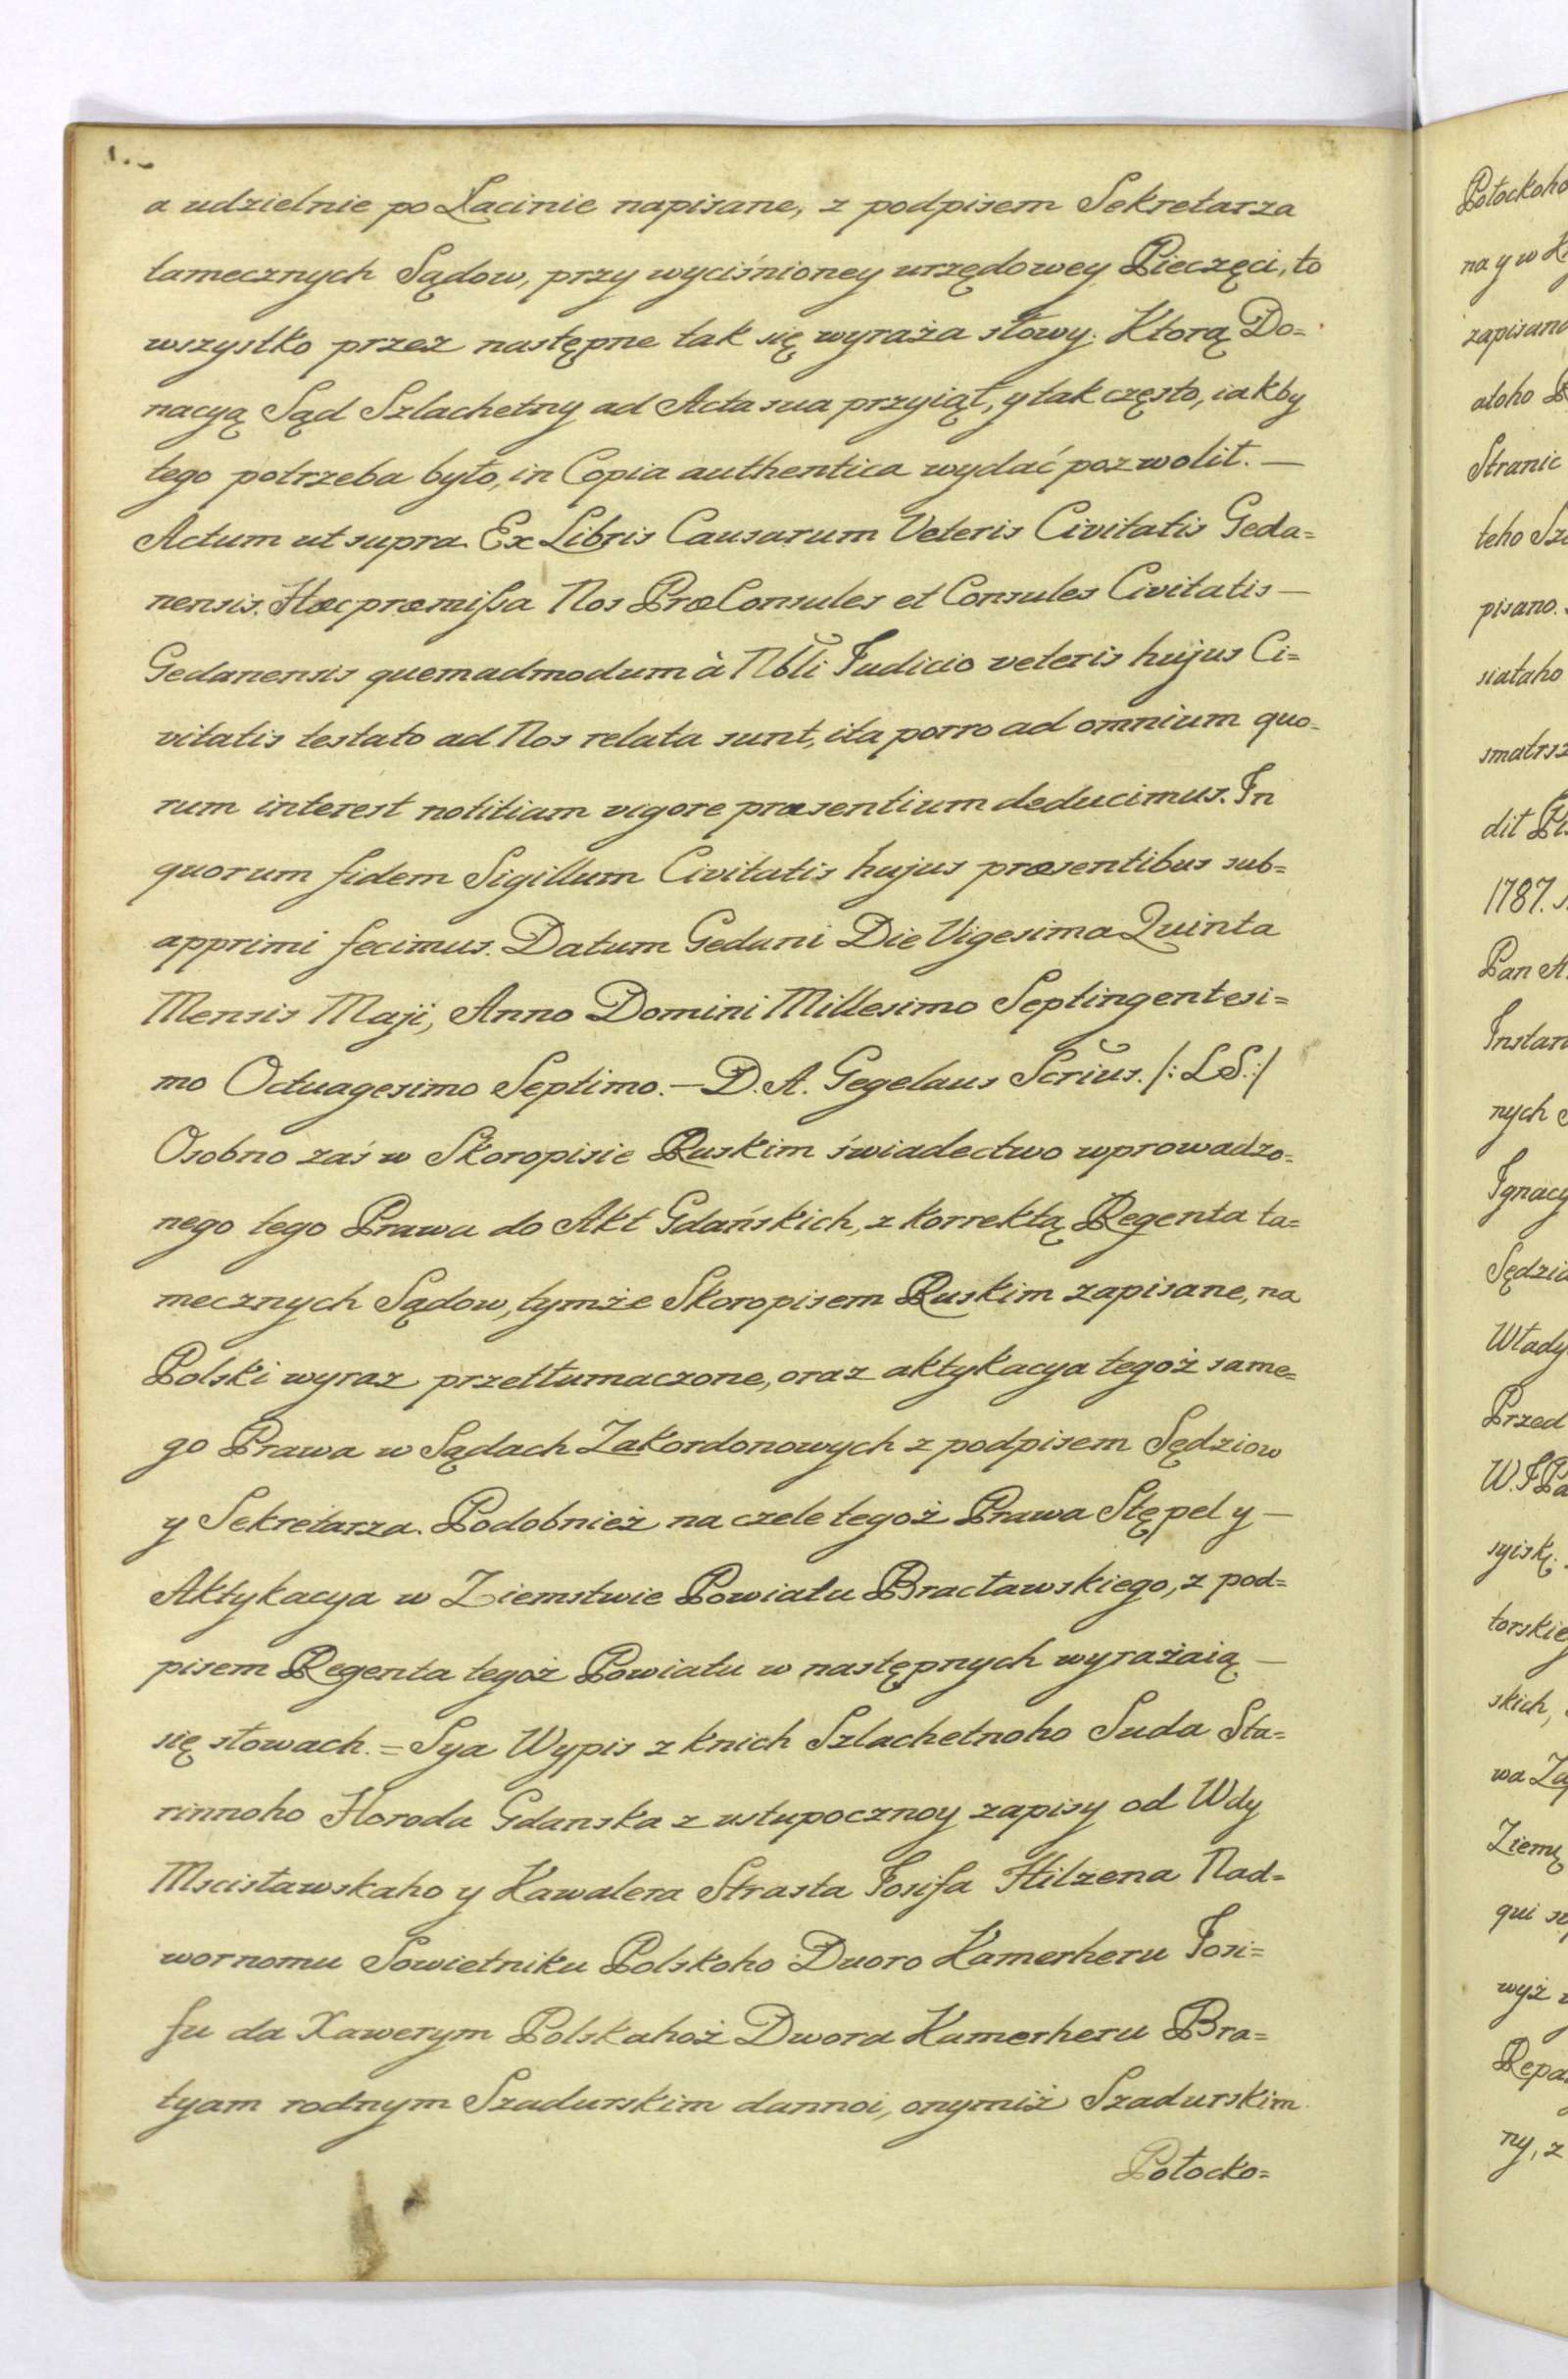 a udzielnie po Łacinie napisane, z podpisem Sekretarza
tamecznych Sądow, przy wyciśnioney urzędowey Pieczęci, to
wszystko przez następne tak się wyraża słowy: Ktorą Do=
nacyą Sąd Szlachetny ad Acta sua przyiął, y tak często, iakby
tego potrzeba było, in Copia authentica wydać pozwolił. —
Actum ut supra. Ex Libris Causarum Veteris Civitatis Geda=
nensis. Hæc præmissa Nos PræConsules et Consules Civitatis —
Gedanensis quemadmodum à Nbli Judicio veteris hujus Ci=
vitatis testato ad Nos relata sunt, ita porro ad omnium quo=
rum interest notitiam vigore præsentium deducimus. In
quorum fidem Sigillum Civitatis hujus præsentibus sub=
apprimi fecimus. Datum Gedani Die Vigesima Quinta
Mensis Maji, Anno Domini Millesimo Septingentesi=
mo Octuagesimo Septimo. — D. A. Gegelaus Scrius. /: LS. :/
Osobno zaś w Skoropisie Ruskim świadectwo wprowadzo=
nego tego Prawa do Akt Gdańskich, z korrektą Regenta ta=
mecznych Sądow, tymże Skoropisem Ruskim zapisane, na
Polski wyraz przetłumaczone, oraz aktykacya tegoż same=
go Prawa w Sądach Zakordonowych z podpisem Sędziow
y Sekretarza. Podobnież na czele tegoż Prawa Stępel y —
Aktykacya w Ziemstwie Powiatu Bracławskiego, z pod=
pisem Regenta tegoż Powiatu w następnych wyrażaią —
się słowach. = Sya Wypis z knich Szlachetnoho Suda Sta=
rinnoho Horoda Gdanska z ustupocznoy zapisy od Wdy
Mscisławskaho y Kawalera Strasta Josifa Hilzena Nad=
wornomu Sowietniku Polskoho Dworo Kamerheru Josi=
fu da Xawerym Polskahoż Dwora Kamerheru Bra=
tyam rodnym Szadurskim dannoi, onymiż Szadurskim
Połocko=
Połockoho
na y w
zapisano
atoho
Stranic
teho
pisano.
siataho
dit
1787.
Pan A
Instan
nych
Ignacy
Sędzia
Włady
Przed
W. J Pa
torskie
skich,
wa Za
Ziemą
qui
wyż
Repa
ny, z